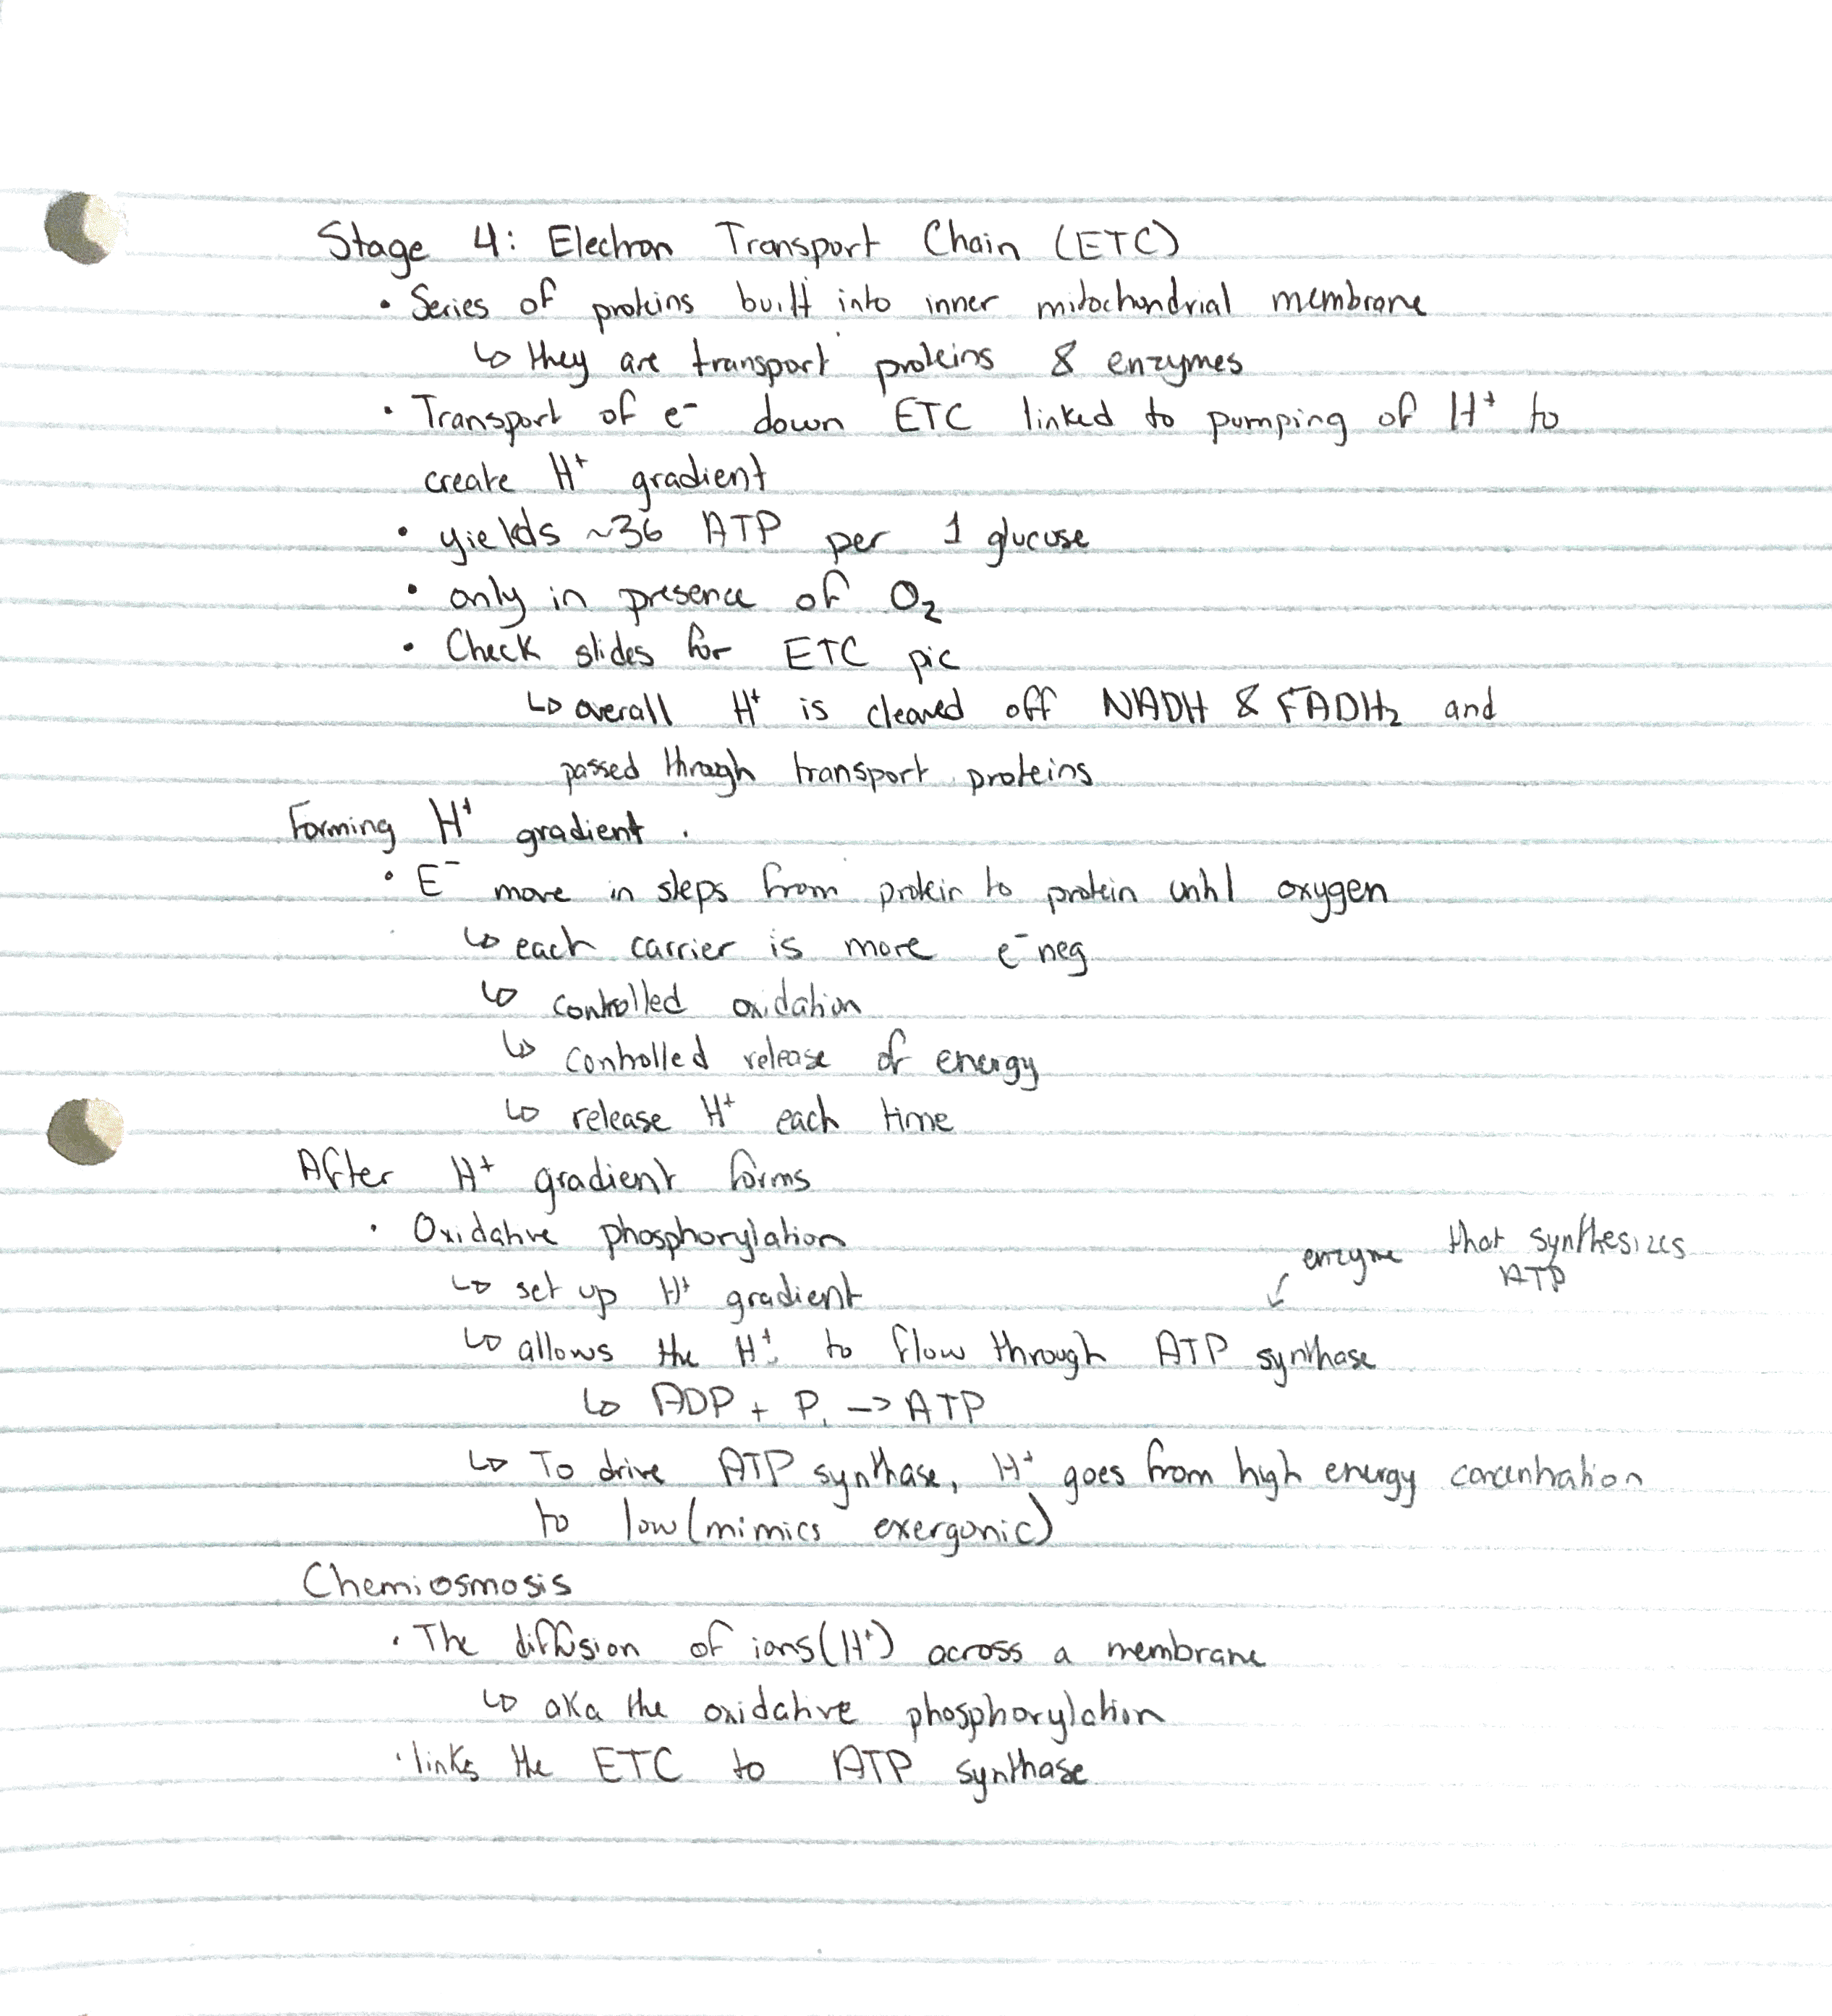 Stage 4: Electron Transport Chain (ETC)
• Series of proteins built into inner mitochondrial membrane
↳ they are transport proteins & enzymes
• Transport of e⁻ down ETC linked to pumping of H⁺ to
create H⁺ gradient
• yields ~36 ATP per 1 glucose
• only in presence of O₂
• Check slides for ETC pic
↳ overall H⁺ is cleaved off NADH & FADH₂ and
passed through transport proteins
Forming H⁺ gradient
• E⁻ move in steps from protein to protein until oxygen
↳ each carrier is more e⁻neg
↳ controlled oxidation
↳ controlled release of energy
↳ release H⁺ each time
After H⁺ gradient forms
• Oxidative phosphorylation
enzyme that synthesizes
ATP
↳ set up H⁺ gradient
↳ allows the H⁺ to flow through ATP synthase
↳ ADP + Pᵢ -> ATP
↳ To drive ATP synthase, H⁺ goes from high energy concentration
to low (mimics exergonic)
Chemiosmosis
• The diffusion of ions (H⁺) across a membrane
↳ aka the oxidative phosphorylation
• links the ETC to ATP synthase